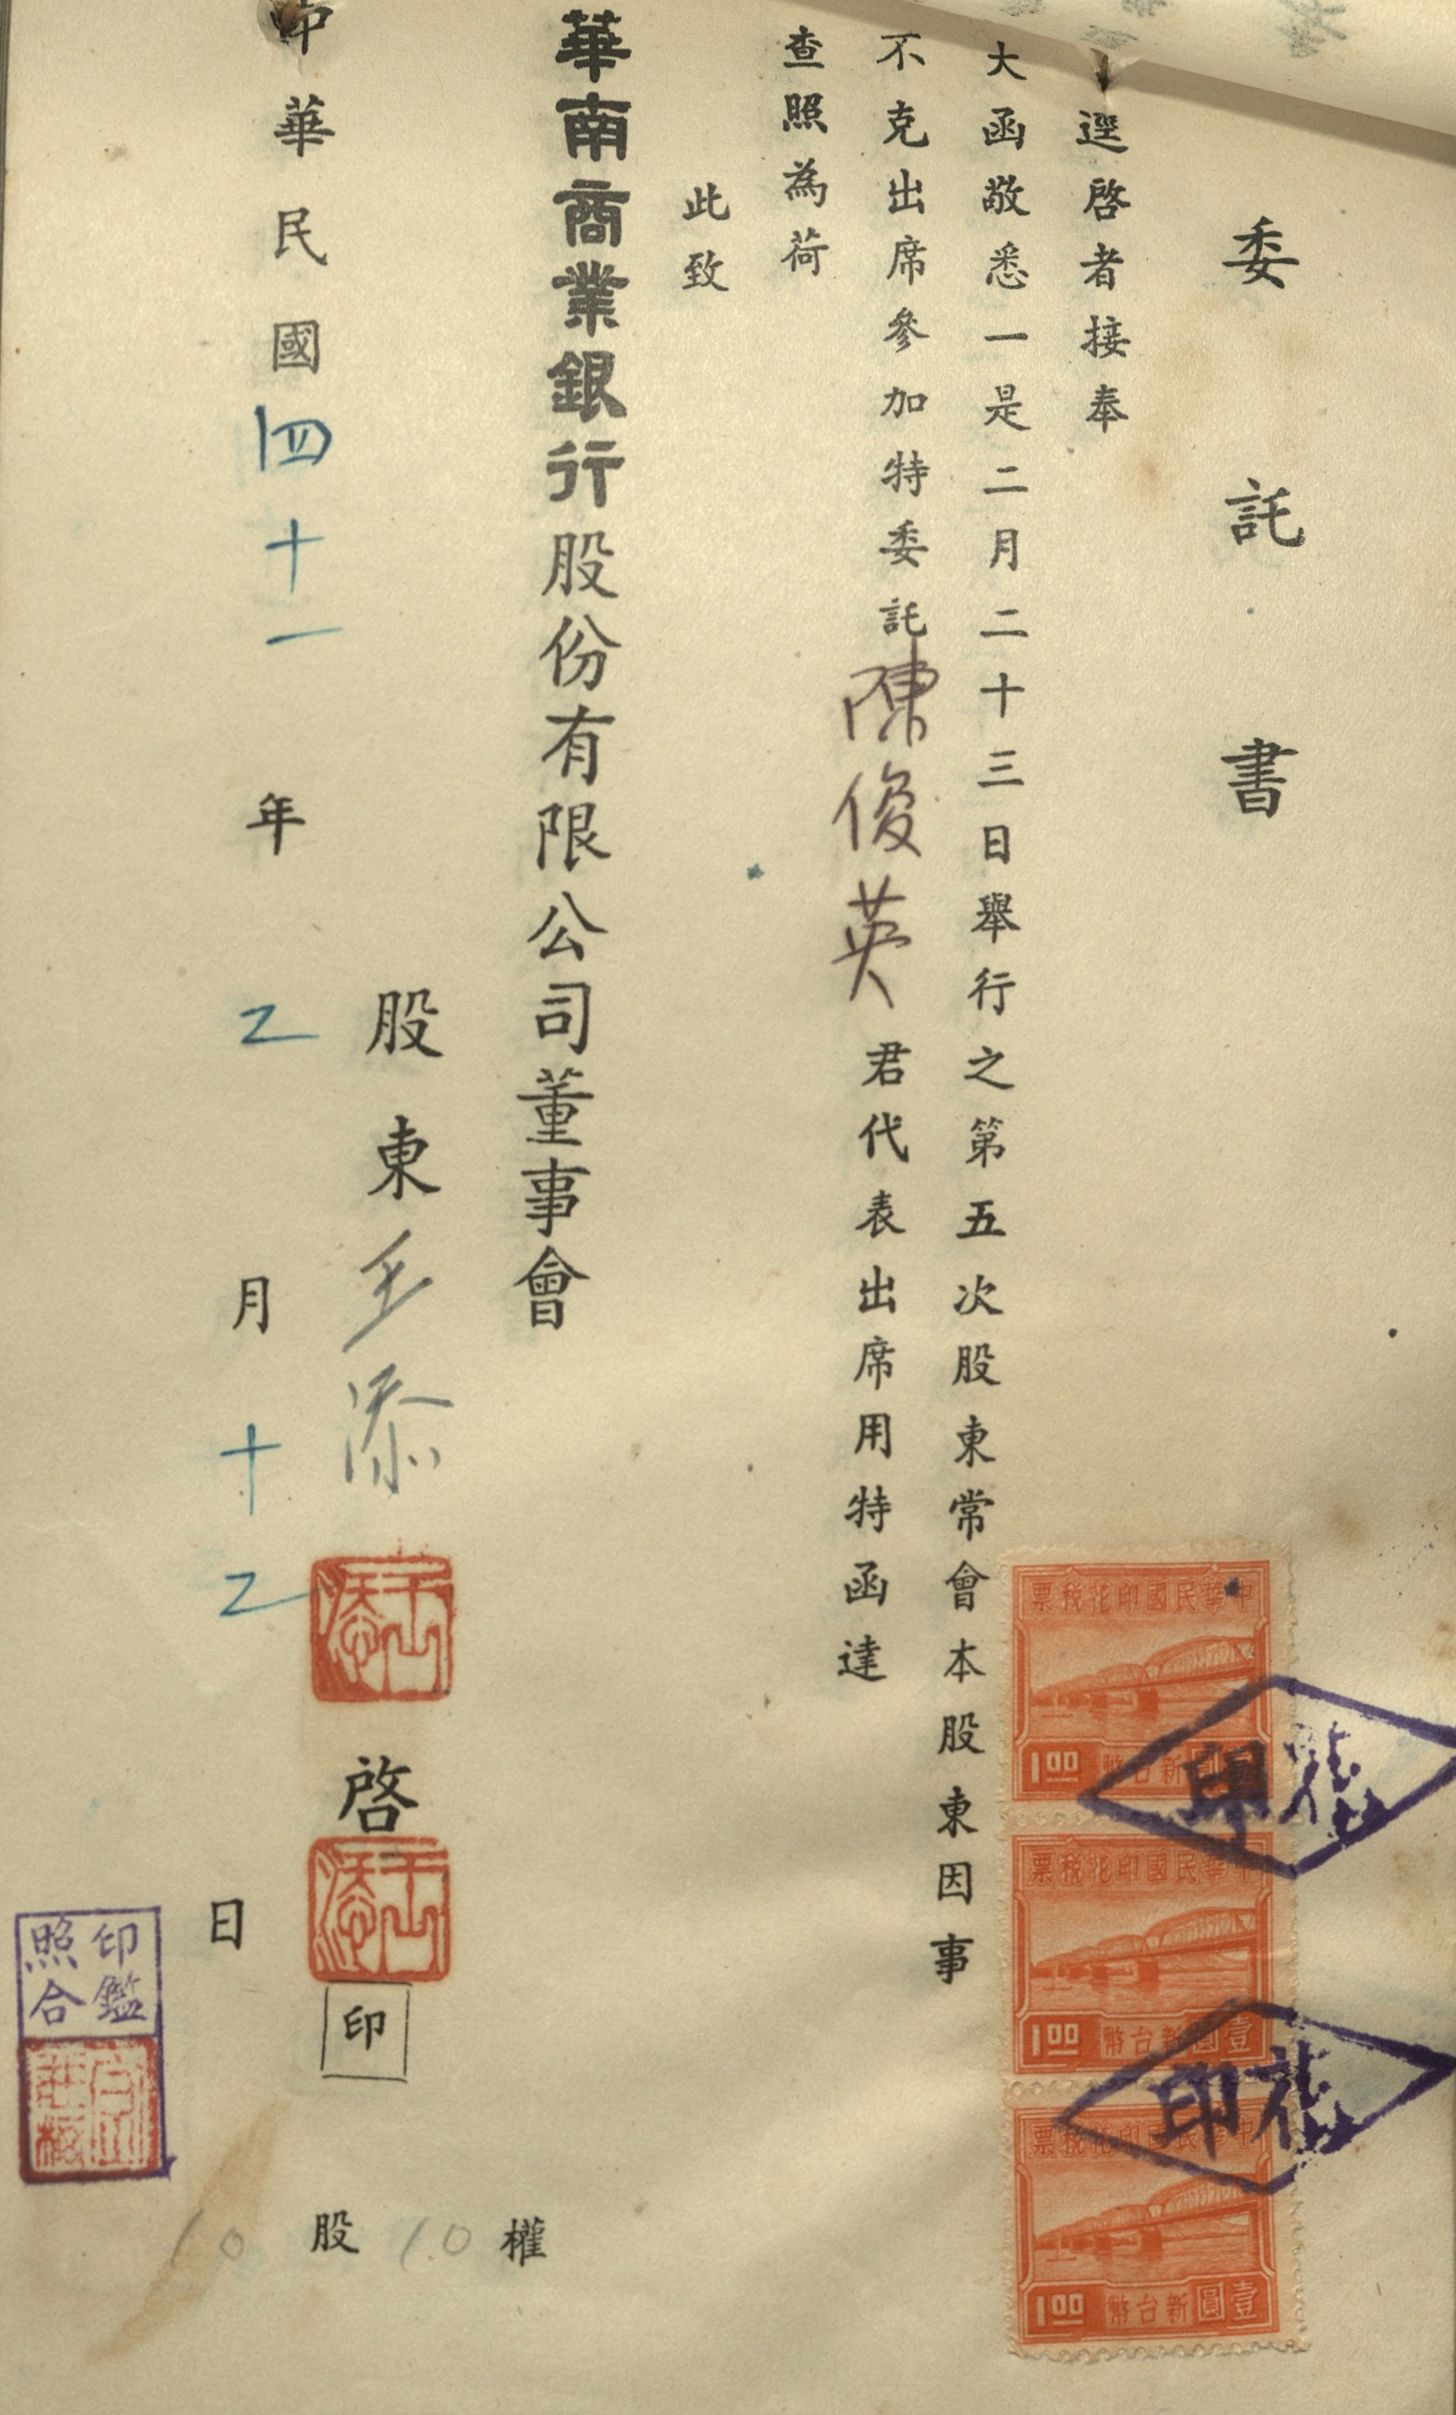 委託書
逕啓者接奉
大函敬悉一是二月二十三日舉行之第五次股東常會本股東因事
不克出席參加特委託陳俊英君代表出席用特函達
查照為荷
此致
華南商業銀行股份有限公司董事會
股東王添啓印
中華民國四十一年2月十2日
10股10權
印鑑
照合
王添
王添
票稅花印國民華中
1.00 幣台新圓壹
票稅花印國民華中
1.00 幣台新圓壹
票稅花印國民華中
1.00 幣台新圓壹
印花
印花